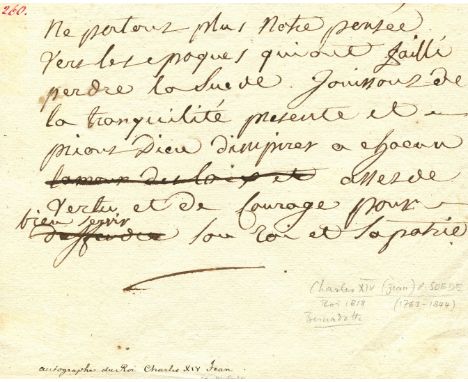 260.
Ne portons plus Notre pensée
Vers les epoques qui ont failli
perdre la Suede. Jouissons de
la tranquilité presente et
prions Dieu dinspirer a chacun
lamour des loix et assez de
Vertu et de Courage pour
bien servir
deffendre son roi et sa patrie
Charles XIV (Jean) de SUEDE
Roi 1818 (1763-1844)
Bernadotte
autographe du Roi Charles XIV Jean